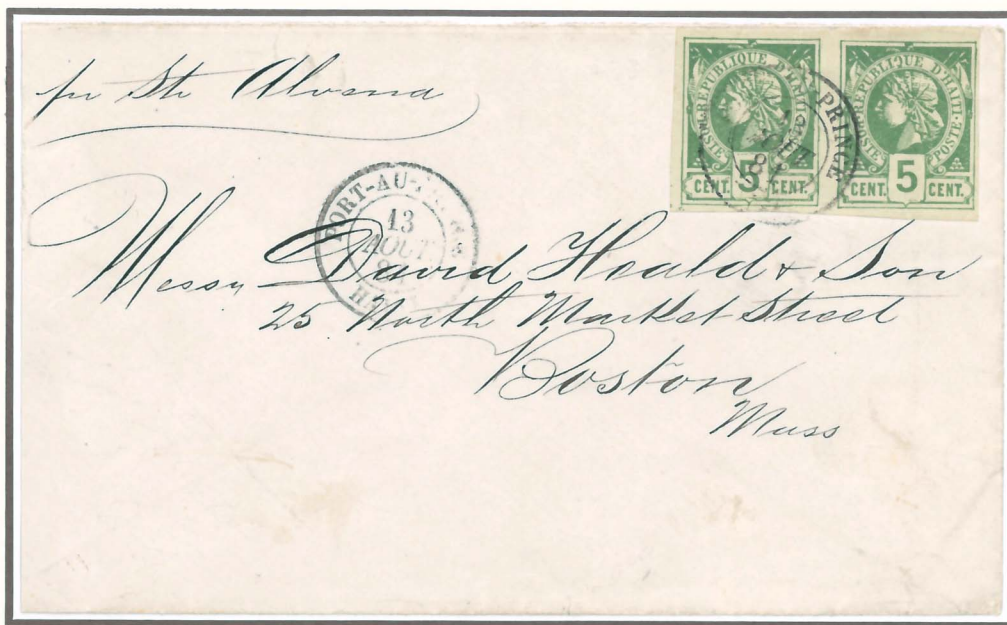 per Str Alvena
REPUBLIQUE D'HAITI
POSTE
CENT. 5 CENT.
REPUBLIQUE D'HAITI
POSTE
CENT. 5 CENT.
PRINCE
PORT-AU-
13
AOUT
Messrs David Heald & Son
25 North Market Street
Boston
Mass